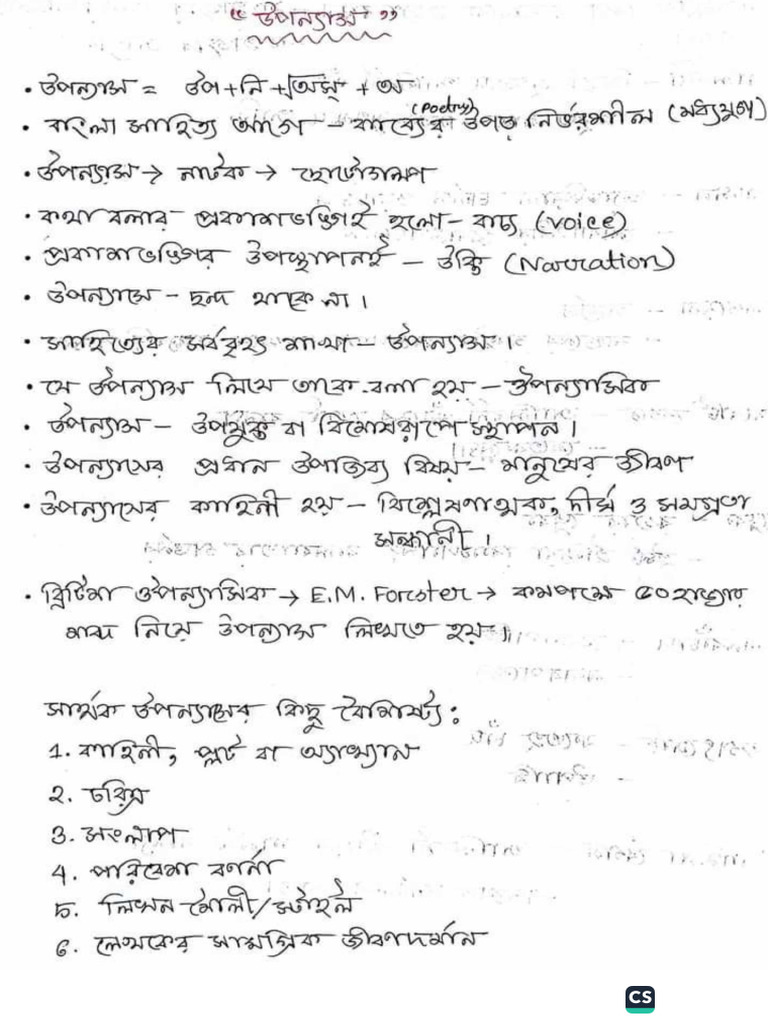 “উপন্যাস”
• উপন্যাস = উপ+নি+√অস্ + অ
(Poetry)
• বাংলা সাহিত্য আগে – কাব্যের উপর নির্ভরশীল (মধ্যযুগ)
• উপন্যাস → নাটক → ছোটোগল্প
• কথা বলার প্রকাশভঙ্গিই হলো – বাচ্য (voice)
• প্রকাশভঙ্গির উপস্থাপনই – উক্তি (Narration)
• উপন্যাসে – ছন্দ থাকে না।
• সাহিত্যের সর্ববৃহৎ শাখা – উপন্যাস।
• যে উপন্যাস লিখে তাকে বলা হয় – ঔপন্যাসিক
• উপন্যাস – উপযুক্ত বা বিশেষরূপে স্থাপন।
• উপন্যাসের প্রধান উপজিব্য বিষয় – মানুষের জীবণ
• উপন্যাসের কাহিনী হয় – বিশ্লেষণাত্মক, দীর্ঘ ও সমগ্রতা
সন্ধানী।
• ব্রিটিশ ঔপন্যাসিক → E.M. Forster → কমপক্ষে ৫০ হাজার
শব্দ নিয়ে উপন্যাস লিখতে হয়।
সার্থক উপন্যাসের কিছু বৈশিষ্ট্য :
1. কাহিনী, প্লট বা আখ্যান
২. চরিত্র
3. সংলাপ
4. পরিবেশ বর্ণনা
5. লিখন শৈলী/স্টাইল
6. লেখকের সামগ্রিক জীবণদর্শন
CS